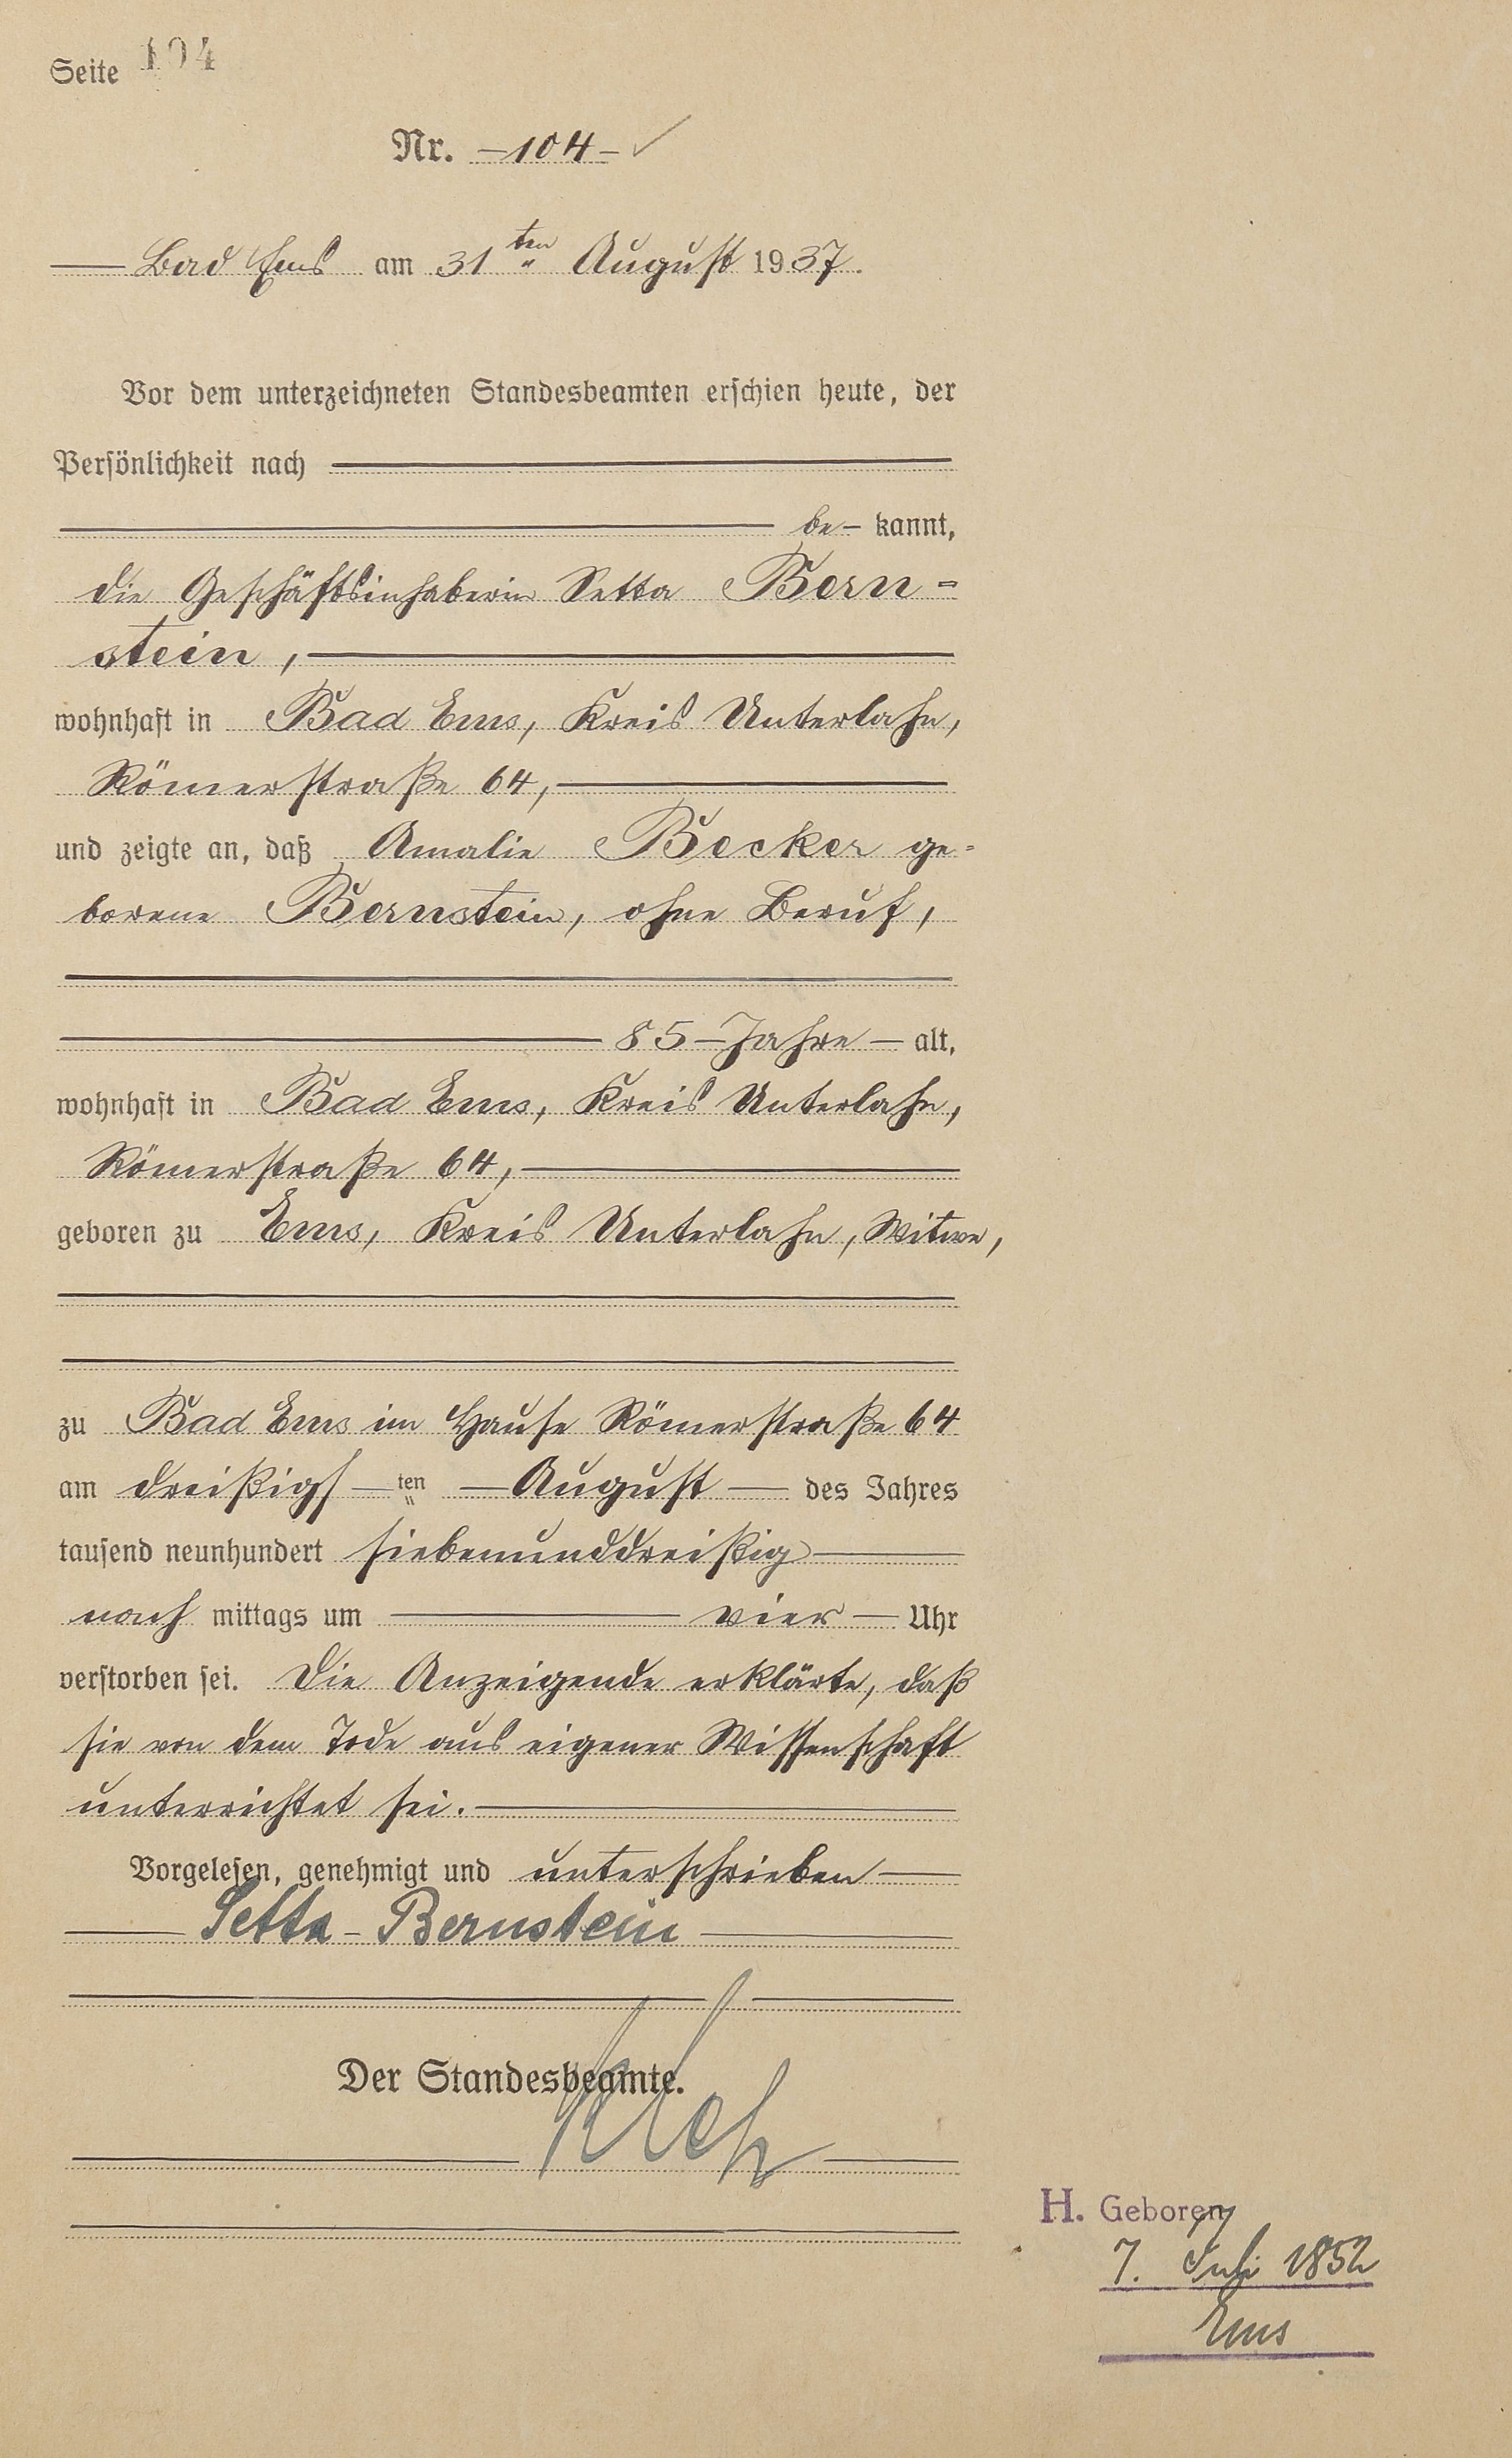 Seite 104
Nr. – 104 –
Bad Ems am 31ten August 1937.
Vor dem unterzeichneten Standesbeamten erschien heute, der
Persönlichkeit nach
be- kannt,
die Geschäftsinhaberin Setta Bern-
stein,
wohnhaft in Bad Ems, Kreis Unterlahn,
Römerstraße 64,
und zeigte an, daß Amalie Becker ge-
borene Bernstein, ohne Beruf,
85 – Jahre – alt,
wohnhaft in Bad Ems, Kreis Unterlahn,
Römerstraße 64,
geboren zu Ems, Kreis Unterlahn, Witwe,
zu Bad Ems im Hause Römerstraße 64
am dreißigs – ten – August – des Jahres
tausend neunhundert siebenunddreißig
nach mittags um vier – Uhr
verstorben sei. Die Anzeigende erklärte, daß
sie von dem Tode aus eigener Wissenschaft
unterrichtet sei.
Vorgelesen, genehmigt und unterschrieben
Setta – Bernstein
Der Standesbeamte.
H. Geboren
7. Juli 1852
Ems